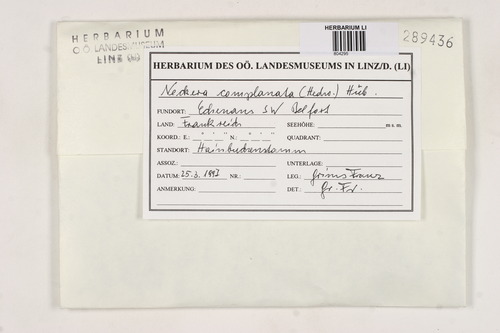 HERBARIUM
OÖ. LANDESMUSEUM
LINZ
HERBARIUM LI
289436
HERBARIUM DES OÖ. LANDESMUSEUMS IN LINZ/D. (LI)
Neckera complanata (Hedw.) Hüb.
FUNDORT: SW Belfort
LAND: Frankreich SEEHÖHE: m s. m.
KOORD.: E.: ° ' " N.: ° ' " QUADRANT:
STANDORT: Hainbuchenstamm
ASSOZ.: UNTERLAGE:
DATUM: 25.3.1997 NR.: LEG.: Grims Franz
ANMERKUNG: DET.: Gr. Fr.